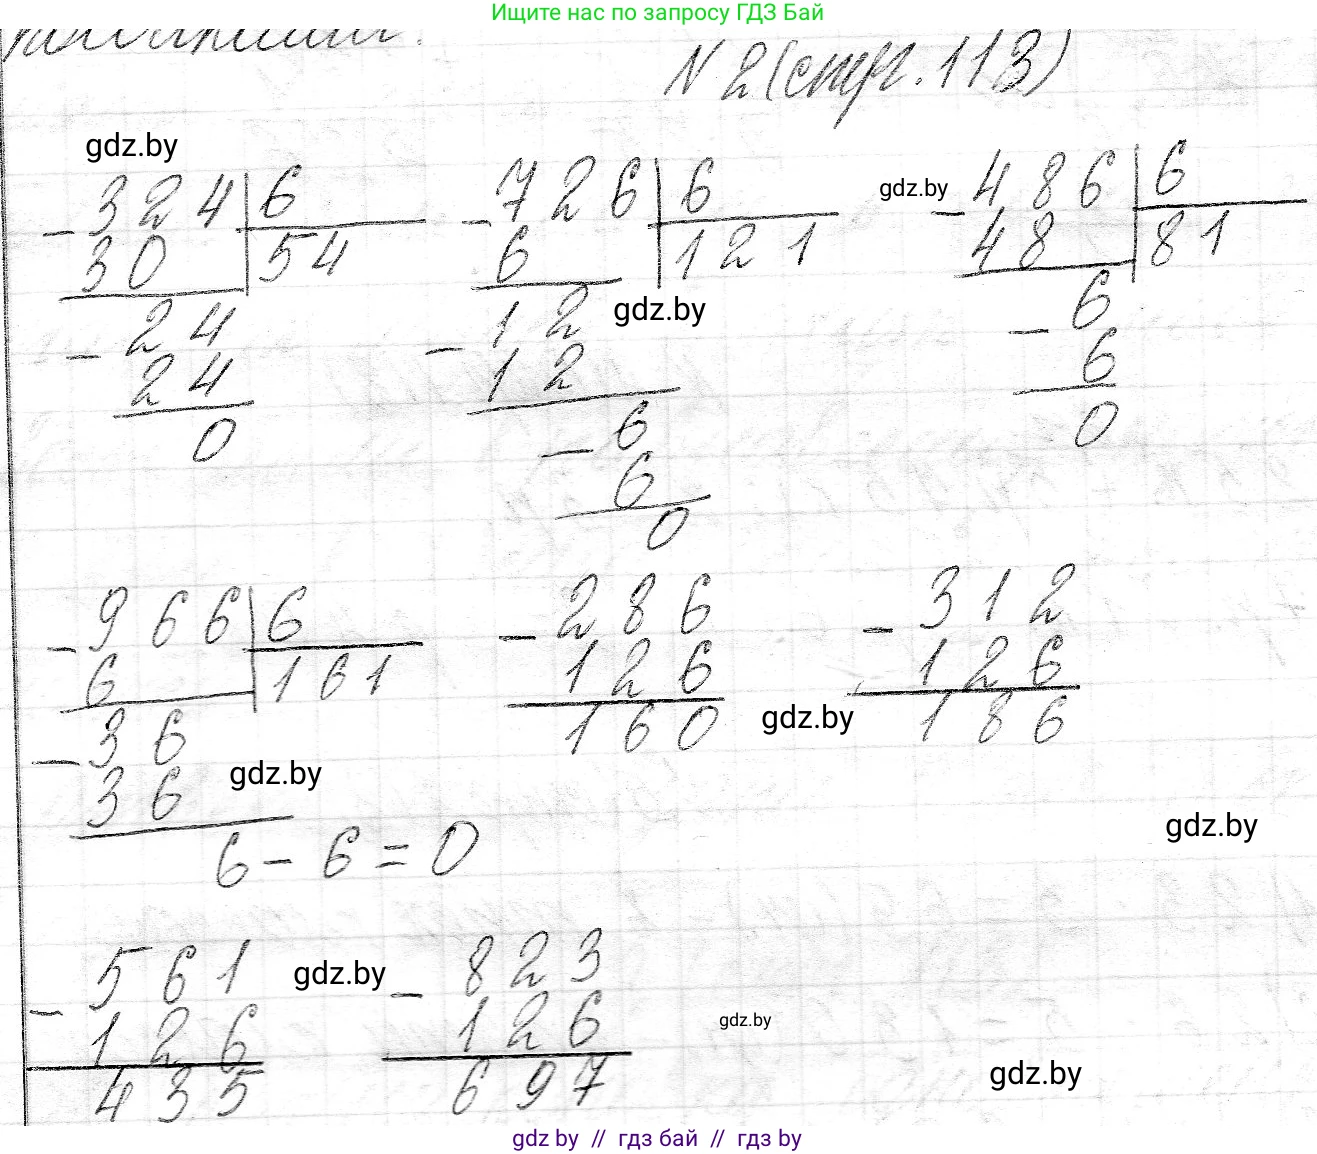 Ищите нас по запросу ГДЗ Бай
N 2 (стр. 113)
gdz.by
- 324 | 6
30 | 54
- 24
24
0
- 726 | 6
6 | 121
gdz.by
- 12
12
- 6
6
0
gdz.by
- 486 | 6
48 | 81
- 6
6
0
- 966 | 6
6 | 161
- 36
36
gdz.by
6 - 6 = 0
- 286
126
160
gdz.by
- 312
126
186
gdz.by
- 561
126
435
gdz.by
- 823
126
697
gdz.by
gdz.by
gdz by // гдз бай // гдз by